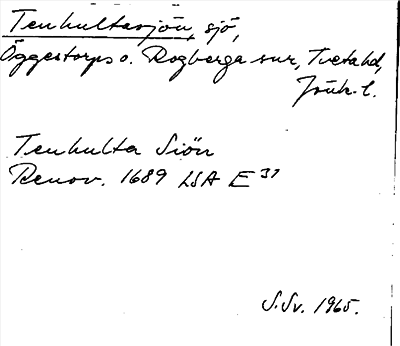 Tenhultasjön, sjö,
Öggestorps o. Rogberga snr, Tveta hd,
Jönk. l.
Tenhulta Siön
Renov. 1689 LSA E 31
S.Sv. 1965.